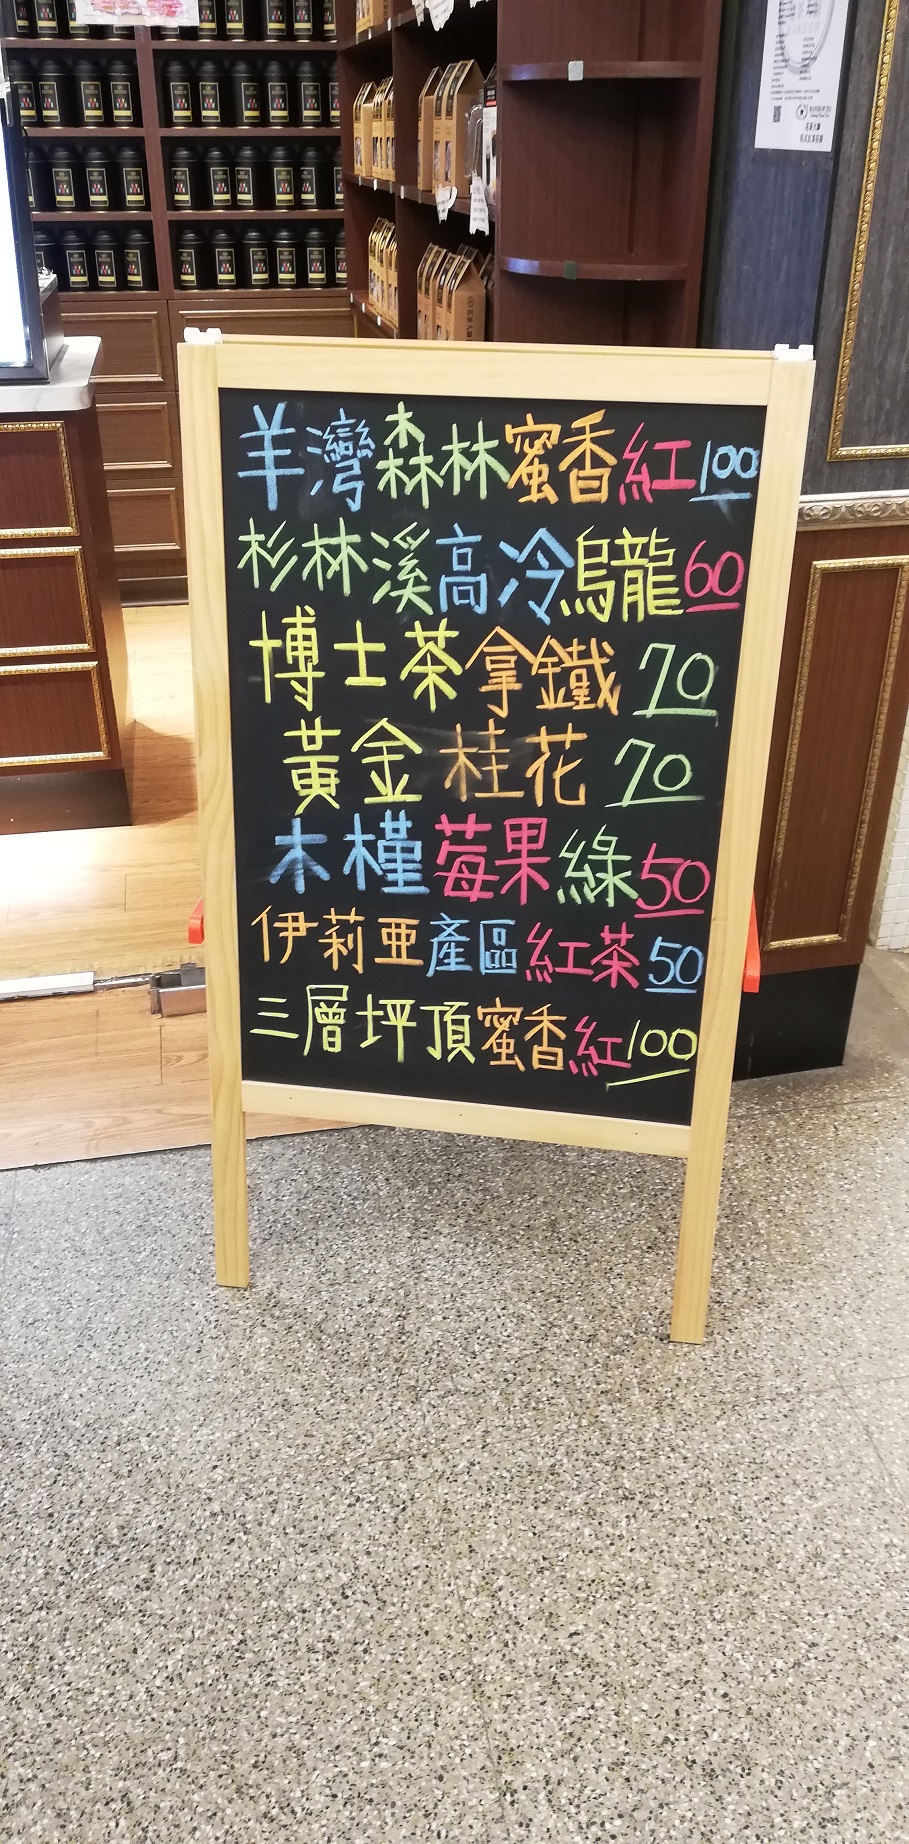 羊灣森林蜜香紅100
杉林溪高冷烏龍60
博士茶拿鐵 70
黃金桂花 70
木槿莓果綠50
伊莉亞產區紅茶50
三層坪頂蜜香紅100